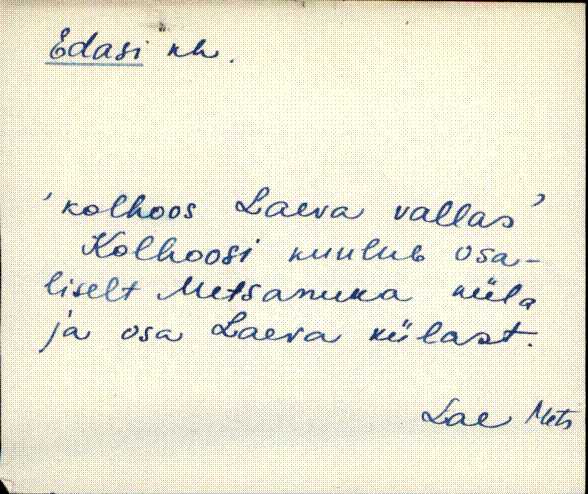 Edasi kh.
'kolhoos Laeva vallas'
Kolhoosi kuulub osa-
liselt Metsanuka küla
ja osa Laeva külast.
Lae Mets